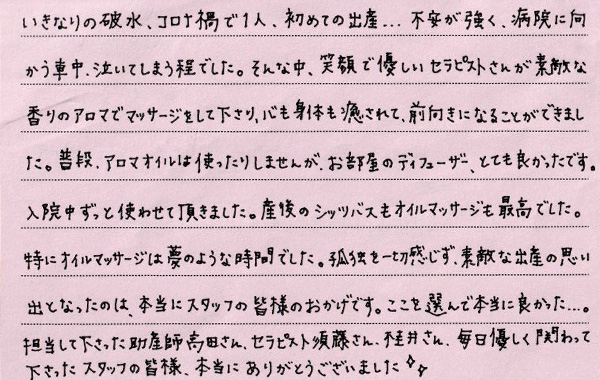 いきなりの破水、コロナ禍で1人、初めての出産... 不安が強く、病院に向
かう車中、泣いてしまう程でした。そんな中、笑顔で優しいセラピストさんが素敵な
香りのアロマでマッサージをして下さり、心も身体も癒されて、前向きになることができまし
た。普段、アロマオイルは使ったりしませんが、お部屋のディフューザー、とても良かったです。
入院中ずっと使わせて頂きました。産後のシッツバスもオイルマッサージも最高でした。
特にオイルマッサージは夢のような時間でした。孤独を一切感じず、素敵な出産の思い
出となったのは、本当にスタッフの皆様のおかげです。ここを選んで本当に良かった...。
担当して下さった助産師高田さん、セラピスト須藤さん、桂井さん、毎日優しく関わって
下さったスタッフの皆様、本当にありがとうございました✧✧